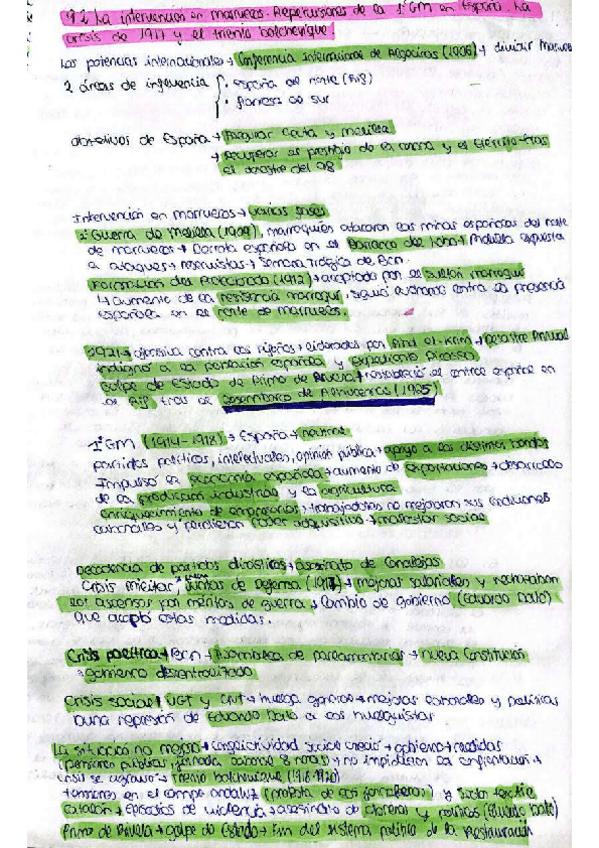 9.2 La intervención en marruecos. Repercusiones de la 1ªGM en España. La
crisis de 1917 y el trienio bolchevique!
Las potencias internacionales → Conferencia Internacional de Algeciras (1906) → dividir Marruecos
2 áreas de influencia { · España al norte (Rif)
· Francia al sur
objetivos de España → Asegurar Ceuta y Melilla
→ recuperar el prestigio de la corona y el Ejército tras
el desastre del 98
Intervención en marruecos → varias fases
2ª Guerra de Melilla (1909), marroquíes atacaron las minas españolas del norte
de marruecos → Derrota española en el Barranco del Lobo → Melilla expuesta
a ataques → reservistas → Semana Trágica de Bcn.
Formación del Protectorado (1912) → aceptado por el sultán marroquí
↳ aumento de la resistencia marroquí. siguió avanzando contra la presencia
española en el norte de marruecos.
1921 → ofensiva contra los rifeños → liderados por Abd el-Krim → Desastre Annual
indignó a la población española y Expediente Picasso
Golpe de Estado de Primo de Rivera → restableció el control español en
el Rif tras el Desembarco de Alhucemas (1925)
1ª GM (1914-1918) → España → neutral
partidos políticos, intelectuales, opinión pública → apoyo a los distintos bandos
Impulsó la economía española → aumento de exportaciones → desarrollo
de la producción industrial y la agricultura
enriquecimiento de empresarios → trabajadores no mejoraron sus condiciones
laborales y perdieron poder adquisitivo → malestar social
Decadencia de partidos dinásticos → asesinato de Canalejas
Crisis militar, Juntas de Defensa (1917) → mejoras salariales y rechazaban
los ascensos por méritos de guerra → Cambio de gobierno (Eduardo Dato)
que aceptó estas medidas.
Crisis política → Bcn → Asamblea de parlamentarios → nueva Constitución
→ gobierno descentralizado
Crisis social: UGT y CNT → huelga general → mejoras laborales y políticas
Dura represión de Eduardo Dato a los huelguistas
La situación no mejoró → conflictividad social creció → gobierno → medidas
(pensiones públicas, jornada laboral 8 horas) → no impidieron la confrontación →
crisis se agravó → Trienio bolchevique (1918-1920)
tensiones en el campo andaluz (protesta de los jornaleros) y sector textil
catalán → Episodios de violencia → asesinato de obreros y políticos (Eduardo Dato)
Primo de Rivela → golpe de Estado → Fin del sistema político de la Restauración